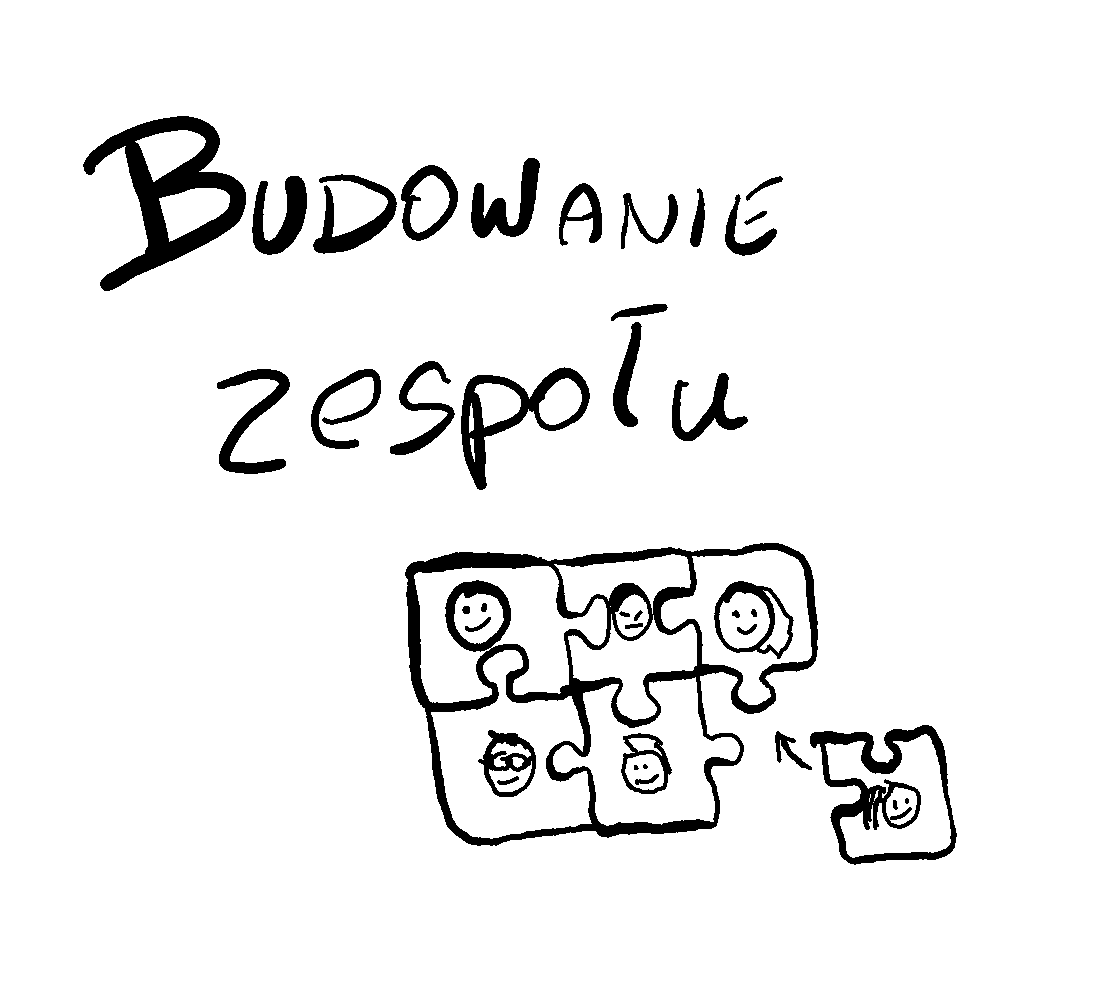 BUDOWANIE
zespołu